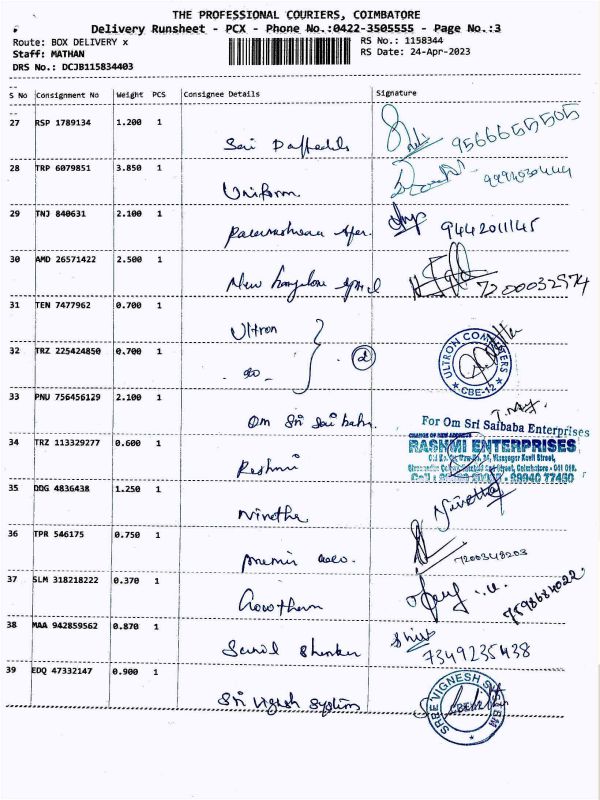 THE PROFESSIONAL COURIERS, COIMBATORE
Delivery Runsheet - PCX - Phone No.:0422-3505555 - Page No.:3
Route: BOX DELIVERY x
RS No.: 1158344
Staff: MATHAN
RS Date: 24-Apr-2023
DRS No.: DCJB115834403
S No Consignment No Weight PCS Consignee Details Signature
27 RSP 1789134 1.200 1 Sai Daffodils 9566655505
28 TRP 6079851 3.850 1 Uniform
29 TNJ 840631 2.100 1 9442011145
30 AMD 26571422 2.500 1 New 7200032974
31 TEN 7477962 0.700 1 Ultron
32 TRZ 225424850 0.700 1 -do- 2
ULTRON COMPUTERS
CBE-12
33 PNU 756456129 2.100 1 Om Sri Sai baba
For Om Sri Saibaba Enterprises
34 TRZ 113329277 0.600 1 Reshmi
CHANGE OF NEW ADDRESS
RASHMI ENTERPRISES
35 DDG 4836438 1.250 1 Nivetha Nivetha
36 TPR 546175 0.750 1 7200348203
37 SLM 318218222 0.370 1 Gowtham 7598684022
38 MAA 942859562 0.870 1 Sunil Shenker 7349235438
39 EDQ 47332147 0.900 1 Sri Vignesh System
SREE VIGNESH SYSTEM